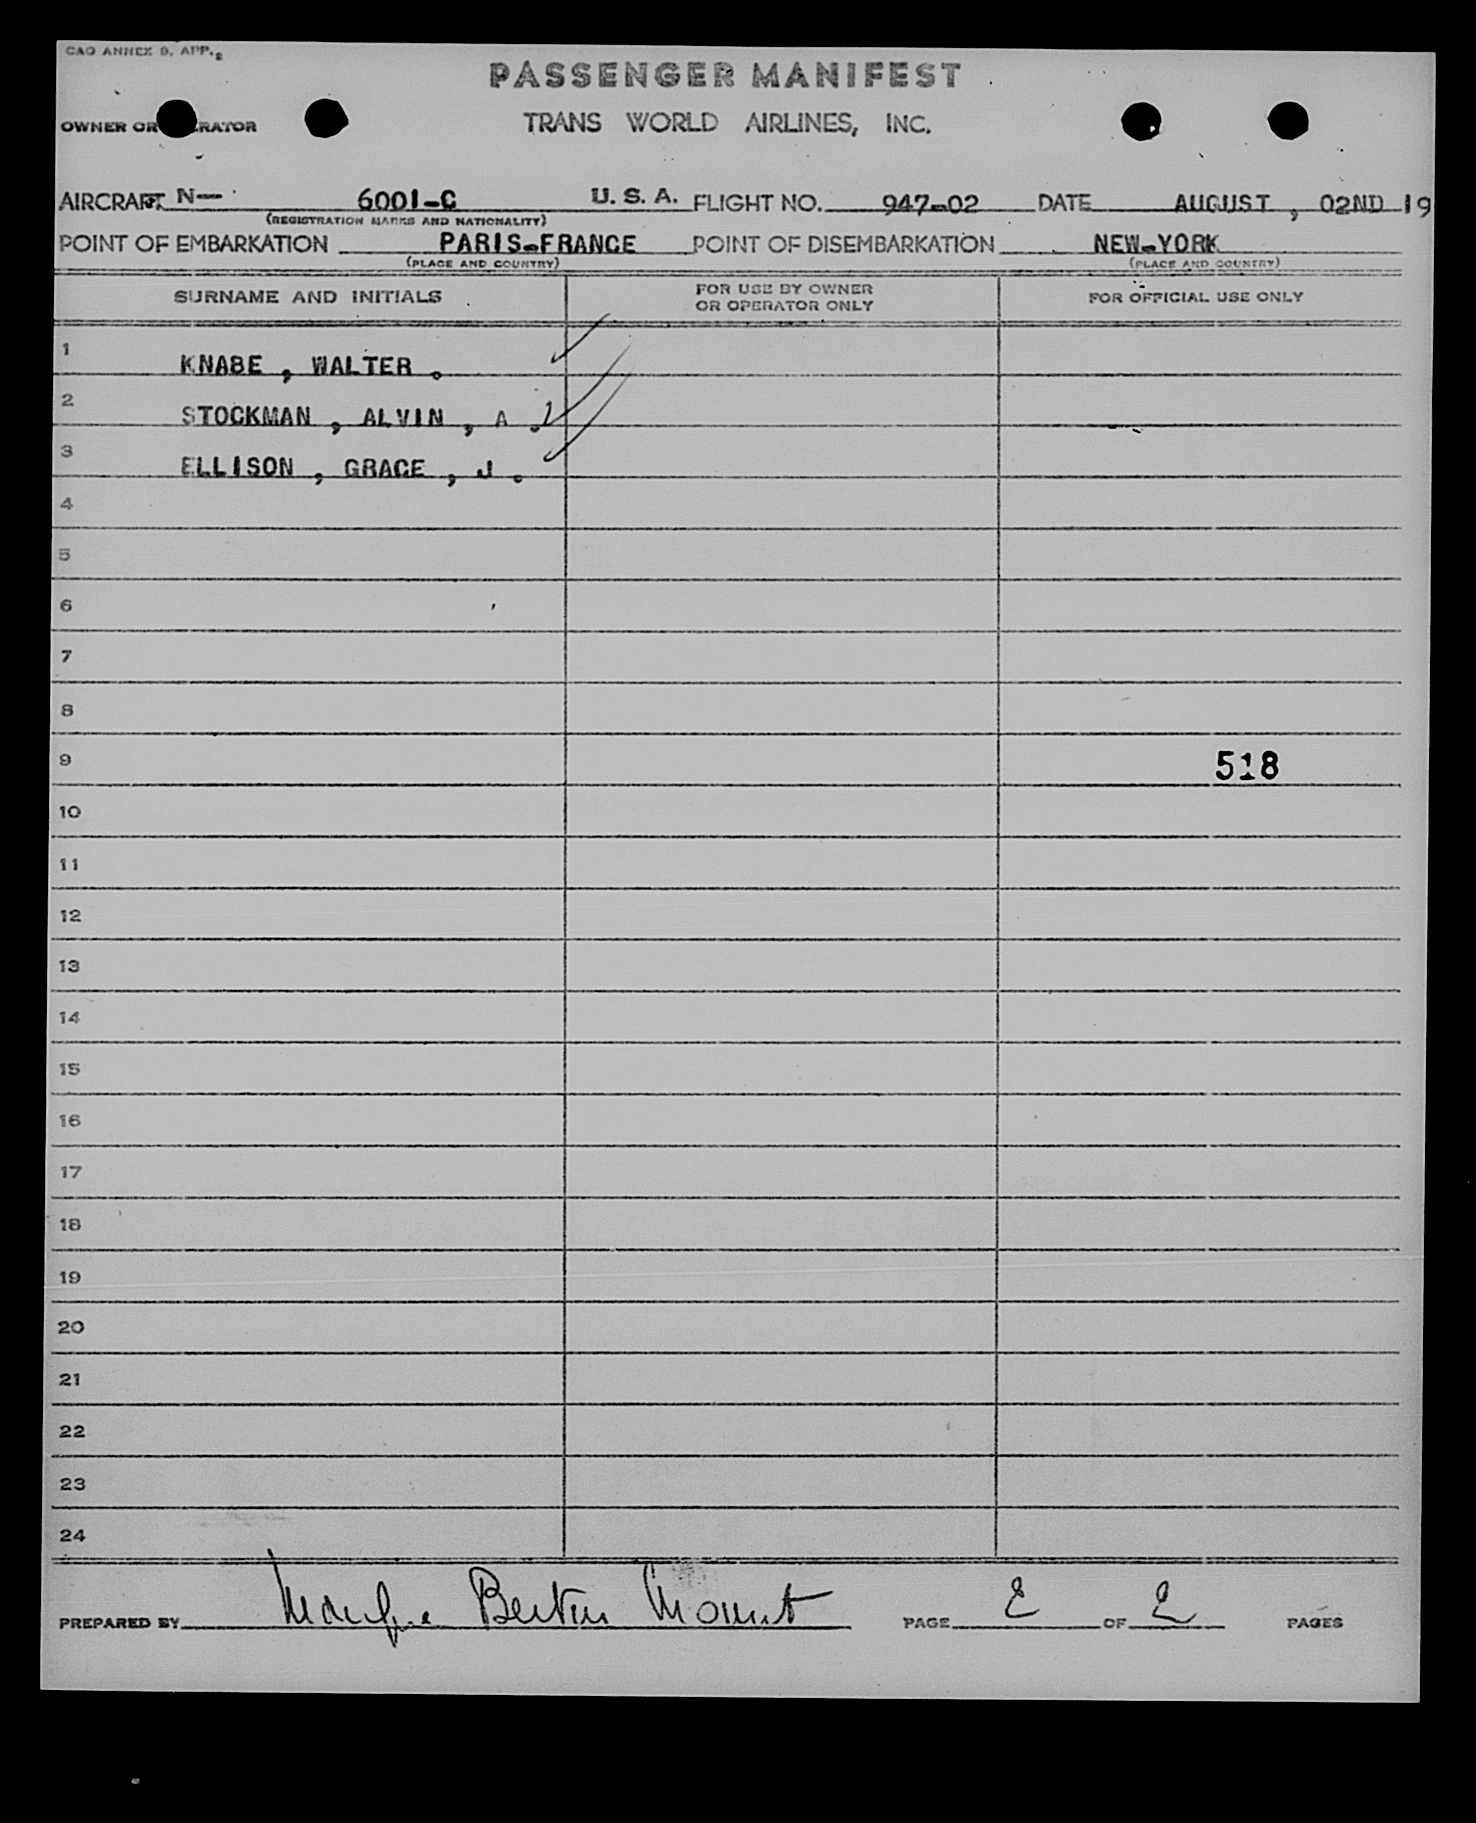 CAO ANNEX 9, APP. 2
PASSENGER MANIFEST
OWNER OR OPERATOR TRANS WORLD AIRLINES, INC.
AIRCRAFT N— 6001-C U. S. A. FLIGHT NO. 947-02 DATE AUGUST , 02ND 19
(REGISTRATION MARKS AND NATIONALITY)
POINT OF EMBARKATION PARIS-FRANCE POINT OF DISEMBARKATION NEW-YORK
(PLACE AND COUNTRY) (PLACE AND COUNTRY)
SURNAME AND INITIALS FOR USE BY OWNER OR OPERATOR ONLY FOR OFFICIAL USE ONLY
1 KNABE , WALTER .
2 STOCKMAN , ALVIN , A .
3 ELLISON , GRACE , J .
4
5
6
7
8
9 518
10
11
12
13
14
15
16
17
18
19
20
21
22
23
24
PREPARED BY PAGE 2 OF 2 PAGES